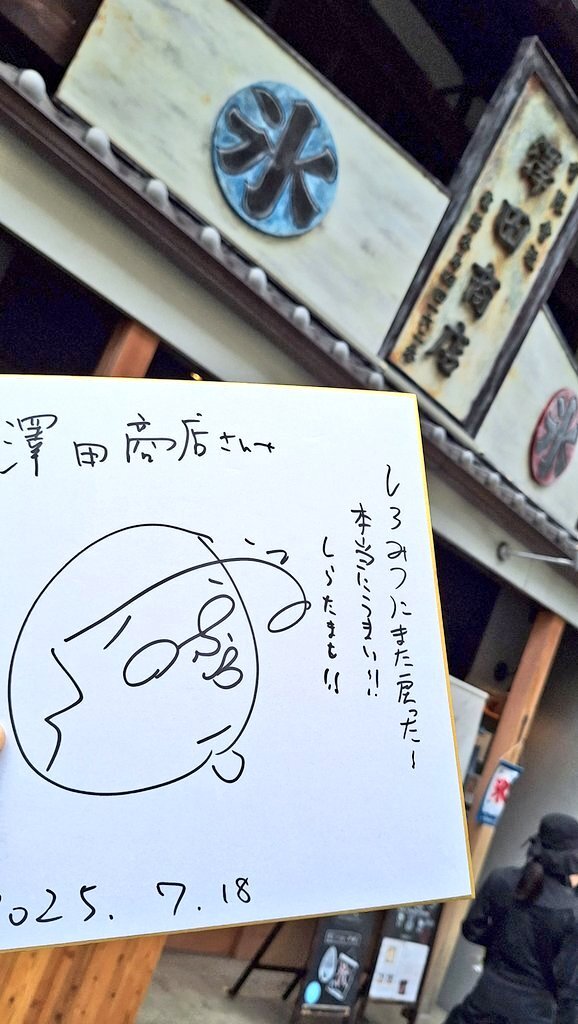 氷
澤田商店
氷
澤田商店さんへ
しろみつにまた戻った〜
本当にうまい!!
しらたまも!!
2025. 7.18
氷